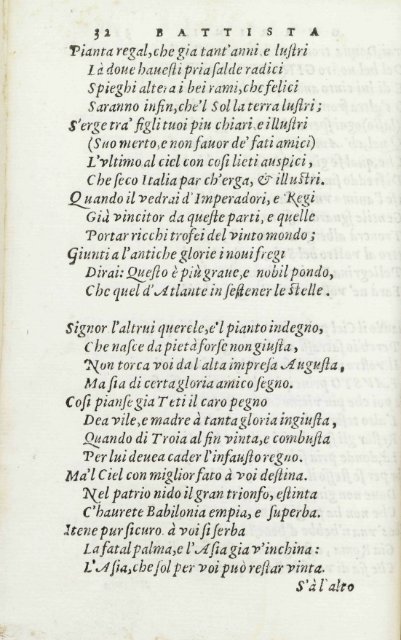 32 BATTISTA
Pianta regal, che gia tant'anni e lustri
Là doue hauesti pria salde radici
Spieghi altera i bei rami, che felici
Saranno infin, che'l Sol la terra lustri;
S'erge tra' figli tuoi piu chiari, e illustri
(Suo merto, e non fauor de' fati amici)
L'vltimo al ciel con cosi lieti auspici,
Che seco Italia par ch'erga, & illustri.
Quando il vedrai d'Imperadori, e Regi
Già vincitor da queste parti, e quelle
Portar ricchi trofei del vinto mondo;
Giunti a l'antiche glorie i noui fregi
Dirai: Questo è più graue, e nobil pondo,
Che quel d'Atlante in sestener le stelle.
Signor l'altrui querele, e'l pianto indegno,
Che nasce da pietà forse non giusta,
Non torca voi da l'alta impresa Augusta,
Ma sia di certa gloria amico segno.
Cosi pianse gia Teti il caro pegno
Dea vile, e madre à tanta gloria ingiusta,
Quando di Troia al fin vinta, e combusta
Per lui deuea cader l'infausto regno.
Ma'l Ciel con miglior fato à voi destina.
Nel patrio nido il gran trionfo, estinta
C'haurete Babilonia empia, e superba.
Itene pur sicuro. à voi si serba
La fatal palma, e l'Asia gia v'inchina:
L'Asia, che sol per voi può restar vinta.
S'à l'alto